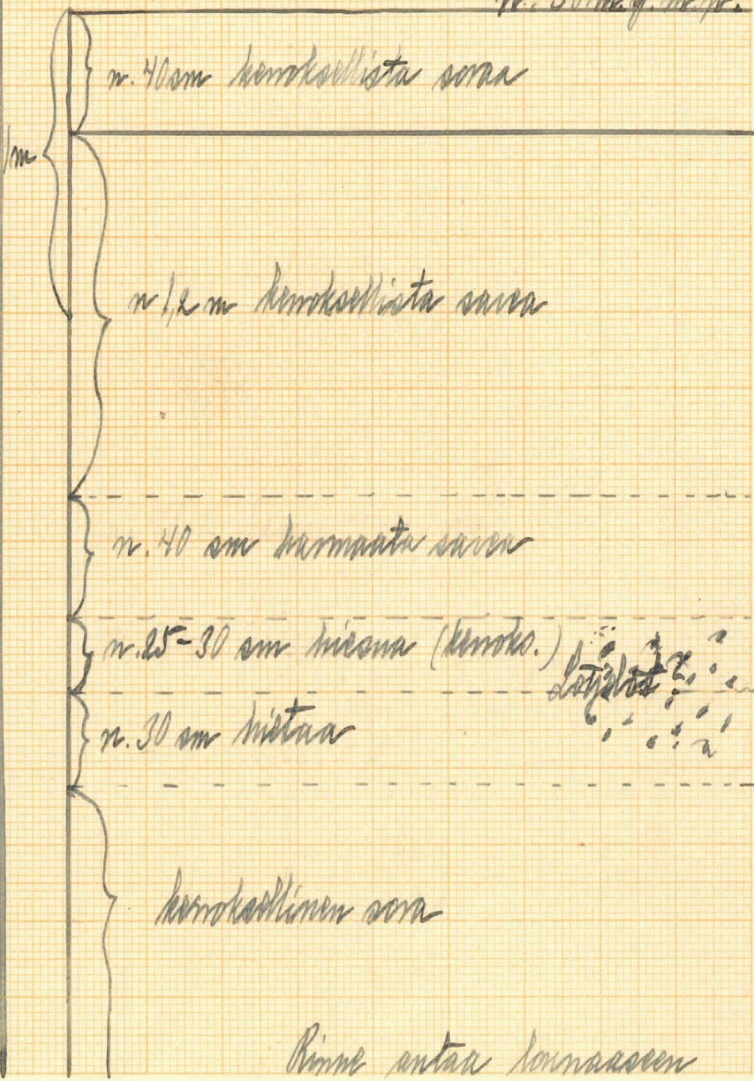 n. 40 sm kerroksellista soraa
1m
n 1,2 m kerroksellista savea
n. 40 sm harmaata savea
n. 25-30 sm hiesua (kerroks.)
Löydöt
n. 30 sm hietaa
kerroksellinen sora
Rinne antaa lounaaseen